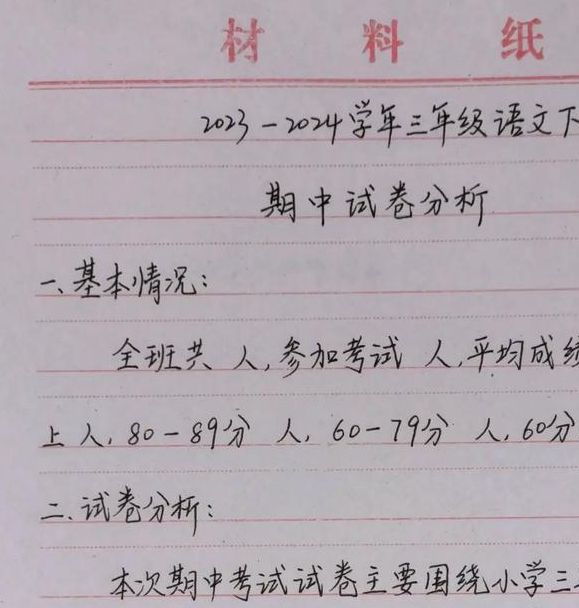 材料纸
2023-2024学年三年级语文下
期中试卷分析
一、基本情况:
全班共 人,参加考试 人,平均成绩
上 人, 80-89分 人, 60-79分 人, 60分
二、试卷分析:
本次期中考试试卷主要围绕小学三